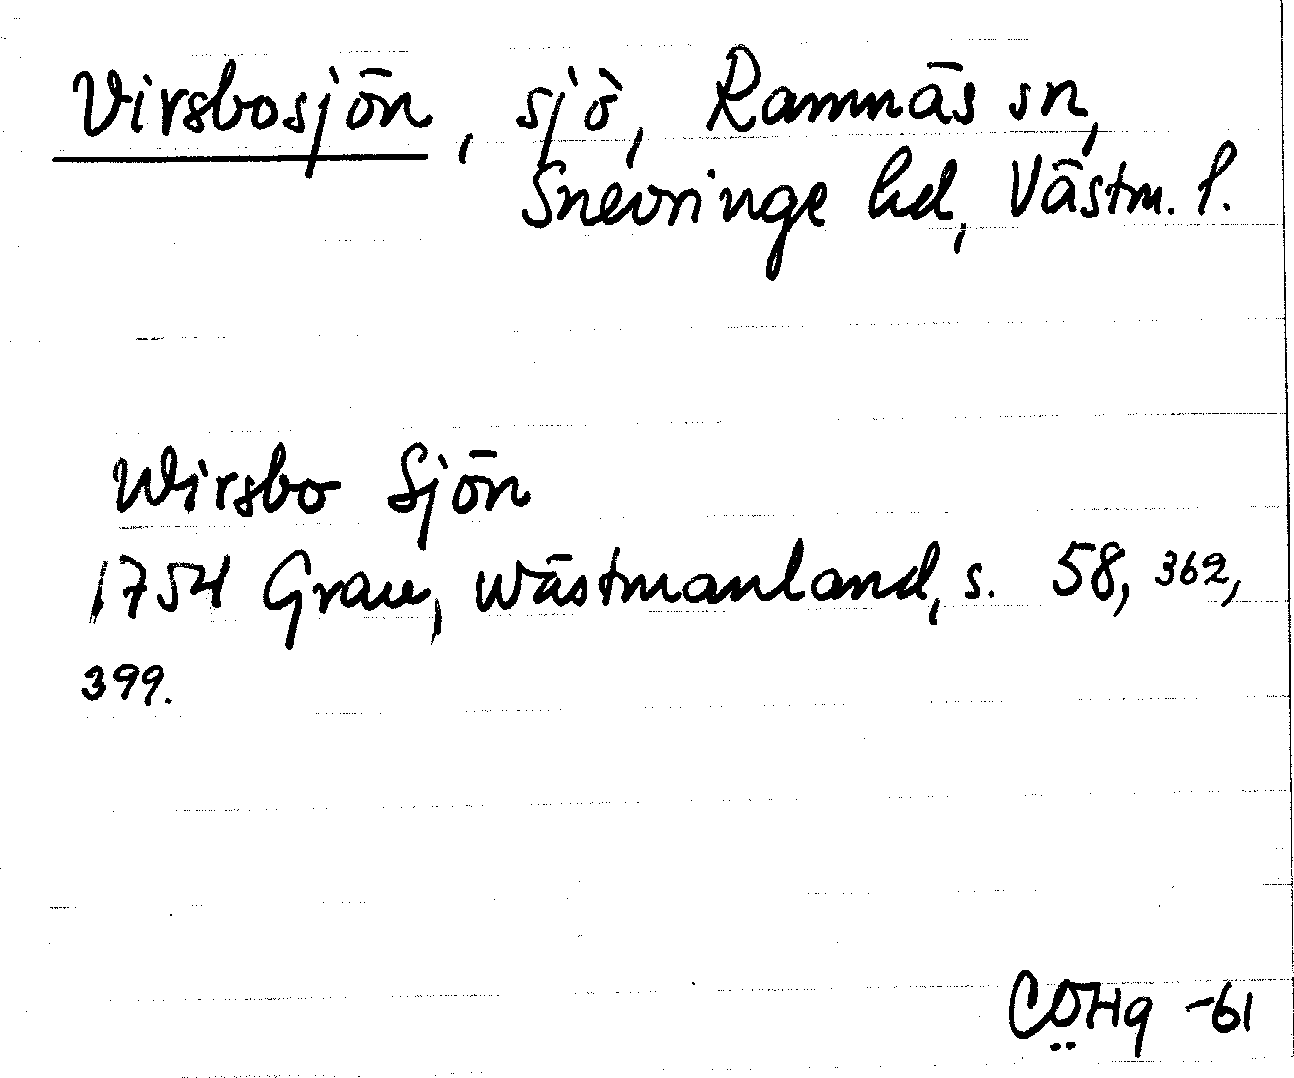 Virsbosjön, sjö, Ramnäs sn,
Snevringe hd, Västm. l.
Wirsbo Sjön
1754 Grau, Wästmanland, s. 58, 362,
399.
CÖHg -61